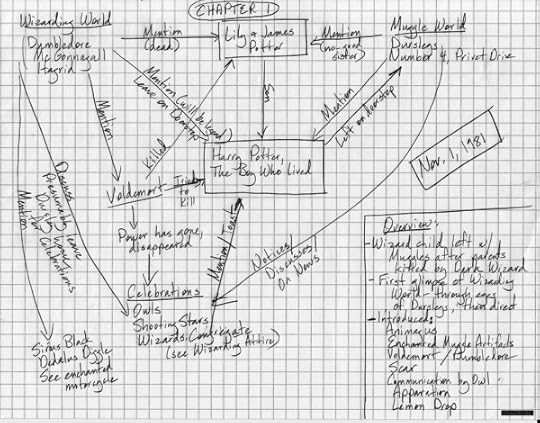 CHAPTER 1
Wizarding World
(Dumbledore
McGonnagall
Hagrid
Mention
(dead)
Lily & James
Potter
Mention
(no-good
sister)
Muggle World
Dursleys
Number 4, Privet Drive
Mention (will be
Leave on Doorstep
Mention
Left on doorstep
Son
Mention
Killed
Harry Potter,
The Boy Who Lived
Nov. 1, 1981
Voldemort
Tried
to
Kill
Discuss
Presumably leave
Dursley house
for Celebrations
Mention
Power has gone,
disappeared
Mention/Toast
Notices/
Discusses/
On News
Celebrations
Owls
Shooting Stars
Wizards Congregate
(see Wizarding Attire)
Sirius Black
Dedalus Diggle
See enchanted
motorcycle
Overview:
- Wizard child left w/
Muggles after parents
killed by Dark Wizard
- First glimpse of Wizarding
World - through eyes
of Dursleys, then direct
- Introduces:
Animagus
Enchanted Muggle Artifacts
Voldemort / Dumbledore
Scar
Communication by Owl
Apparation
Lemon Drop